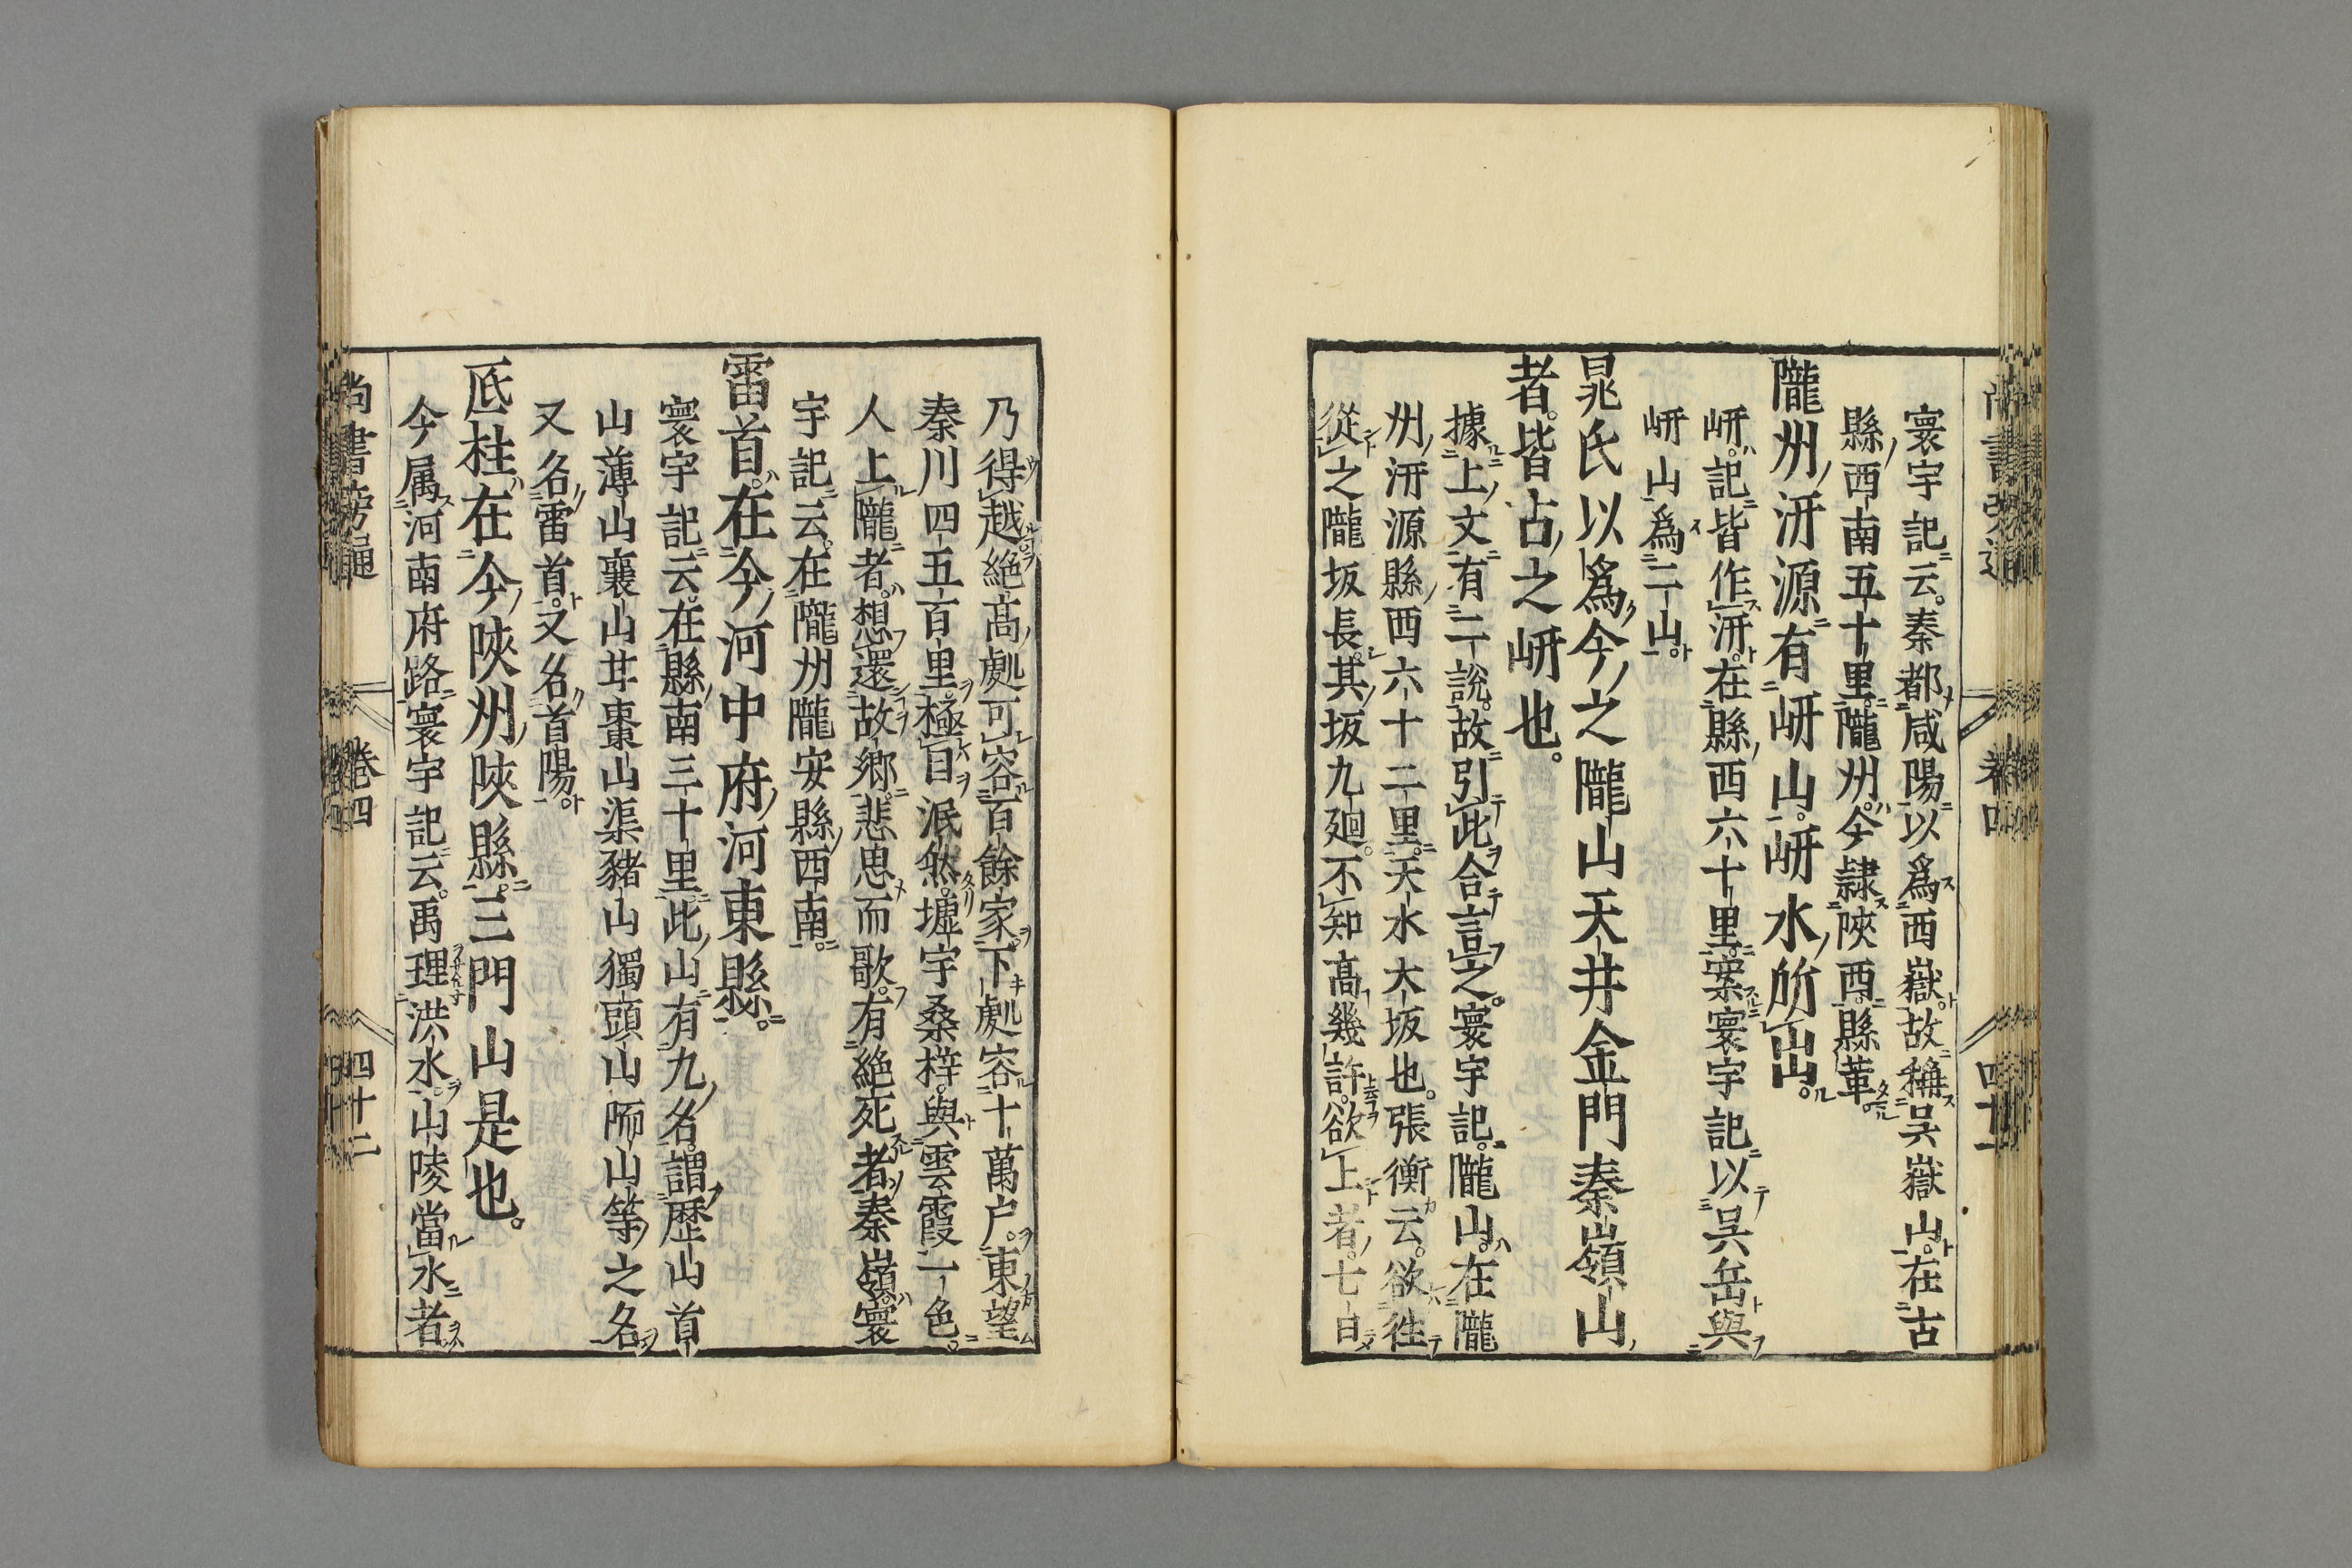 寰宇記云。秦都咸陽以爲西嶽。故稱吴嶽山。在古
縣西南五十里。隴州。今隷陝西。縣革。
隴州汧源有岍山。岍水所出。
岍。記皆作汧。在縣西六十里。案寰宇記以吴岳與
岍山爲二山。
晁氏以爲今之隴山天井金門秦嶺山
者。皆古之岍也。
據上文有二說。故引此合言之。寰宇記。隴山。在隴
州汧源縣西六十二里。天水大坂也。張衡云。欲徃
從之隴坂長。其坂九廻。不知高幾許。欲上者。七日
乃得越絶高處可容百餘家。下處容十萬户。東望
秦川四五百里。極目泯然。墟宇桑梓。與雲霞一色。
人上隴者。想還故鄉。悲思而歌。有絶死者。秦嶺。寰
宇記云。在隴州隴安縣西南。
雷首。在今河中府河東縣。
寰宇記云。在縣南三十里。此山有九名。謂歷山首
山薄山襄山甘棗山渠豬山獨頭山陑山等之名
又名雷首。又名首陽。
厎柱在今陝州陝縣。三門山是也。
今属河南府路寰宇記云。禹理洪水。山陵當水者
尚書旁通 卷四 四十二